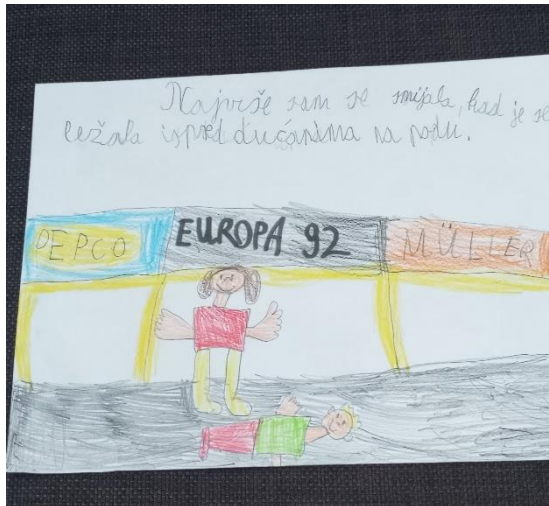 Najviše sam se smijala, kad je se
ležala ispred dućanima na podu.
DEPCO EUROPA 92 MÜLLER